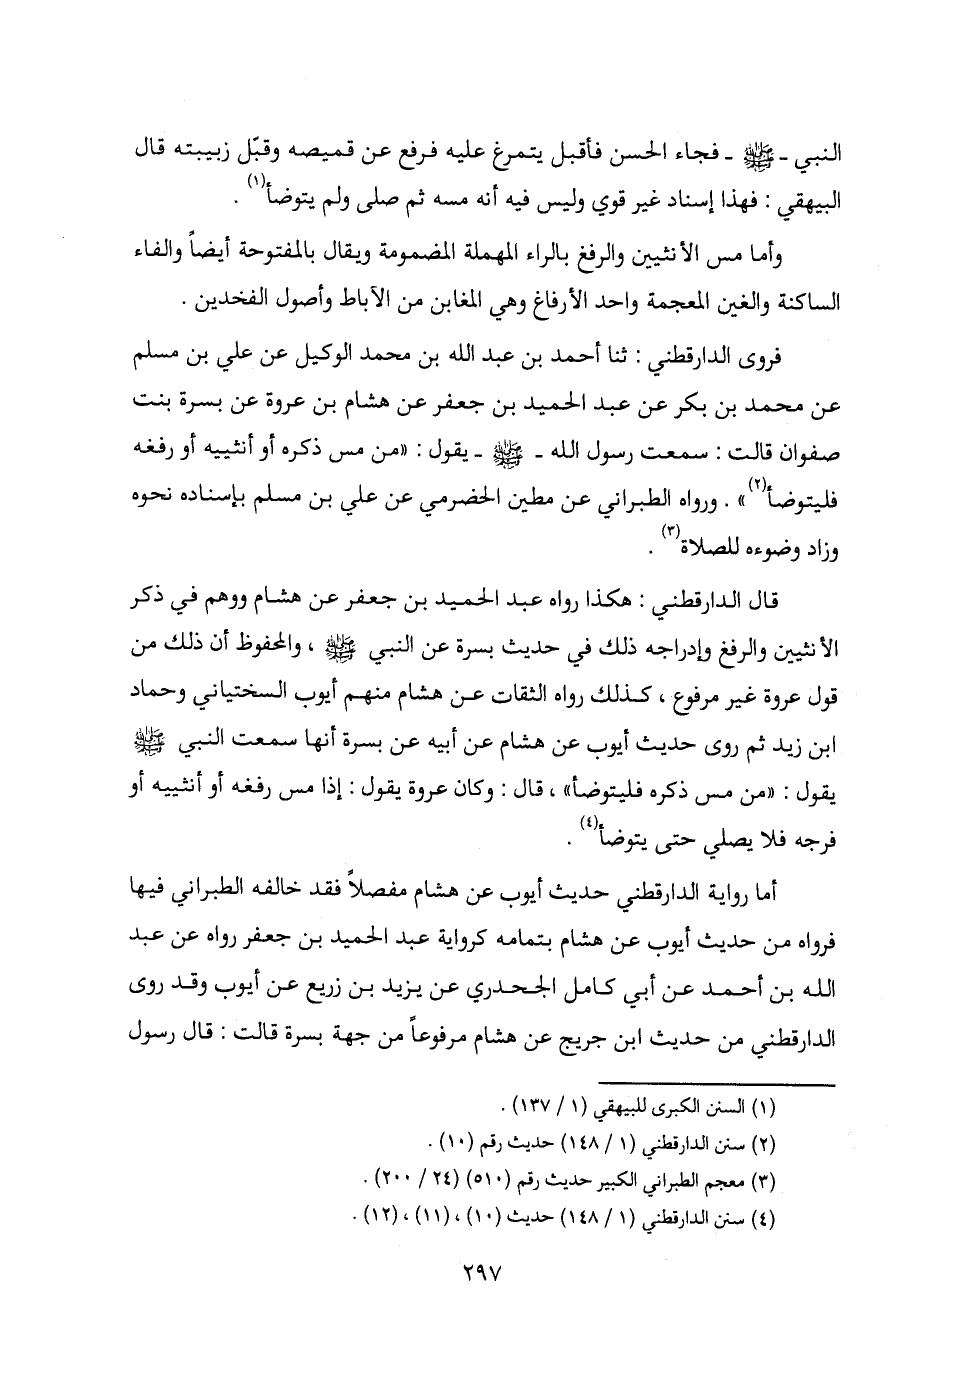 النبي ـ ﷺ ـ فجاء الحسن فأقبل يتمرغ عليه فرفع عن قميصه وقبّل زبيبته قال
البيهقي : فهذا إسناد غير قوي وليس فيه أنه مسه ثم صلى ولم يتوضأ(١) .
وأما مس الأنثيين والرفغ بالراء المهملة المضمومة ويقال بالمفتوحة أيضاً والفاء
الساكنة والغين المعجمة واحد الأرفاغ وهي المغابن من الآباط وأصول الفخدين .
فروى الدارقطني : ثنا أحمد بن عبد الله بن محمد الوكيل عن علي بن مسلم
عن محمد بن بكر عن عبد الحميد بن جعفر عن هشام بن عروة عن بسرة بنت
صفوان قالت : سمعت رسول الله ـ ﷺ ـ يقول : «من مس ذكره أو أنثييه أو رفغه
فليتوضأ(٢)» . ورواه الطبراني عن مطين الحضرمي عن علي بن مسلم بإسناده نحوه
وزاد وضوءه للصلاة(٣) .
قال الدارقطني : هكذا رواه عبد الحميد بن جعفر عن هشام ووهم في ذكر
الأنثيين والرفغ وإدراجه ذلك في حديث بسرة عن النبي ﷺ ، والمحفوظ أن ذلك من
قول عروة غير مرفوع ، كذلك رواه الثقات عن هشام منهم أيوب السختياني وحماد
ابن زيد ثم روى حديث أيوب عن هشام عن أبيه عن بسرة أنها سمعت النبي ﷺ
يقول : «من مس ذكره فليتوضأ» ، قال : وكان عروة يقول : إذا مس رفغه أو أنثييه أو
فرجه فلا يصلي حتى يتوضأ(٤) .
أما رواية الدارقطني حديث أيوب عن هشام مفصلاً فقد خالفه الطبراني فيها
فرواه من حديث أيوب عن هشام بتمامه كرواية عبد الحميد بن جعفر رواه عن عبد
الله بن أحمد عن أبي كامل الجحدري عن يزيد بن زريع عن أيوب وقد روى
الدارقطني من حديث ابن جريج عن هشام مرفوعاً من جهة بسرة قالت : قال رسول
(١) السنن الكبرى للبيهقي (١ / ١٣٧) .
(٢) سنن الدارقطني (١ / ١٤٨) حديث رقم (١٠) .
(٣) معجم الطبراني الكبير حديث رقم (٥١٠) (٢٤ / ٢٠٠) .
(٤) سنن الدارقطني (١ / ١٤٨) حديث (١٠) ، (١١) ، (١٢) .
٢٩٧